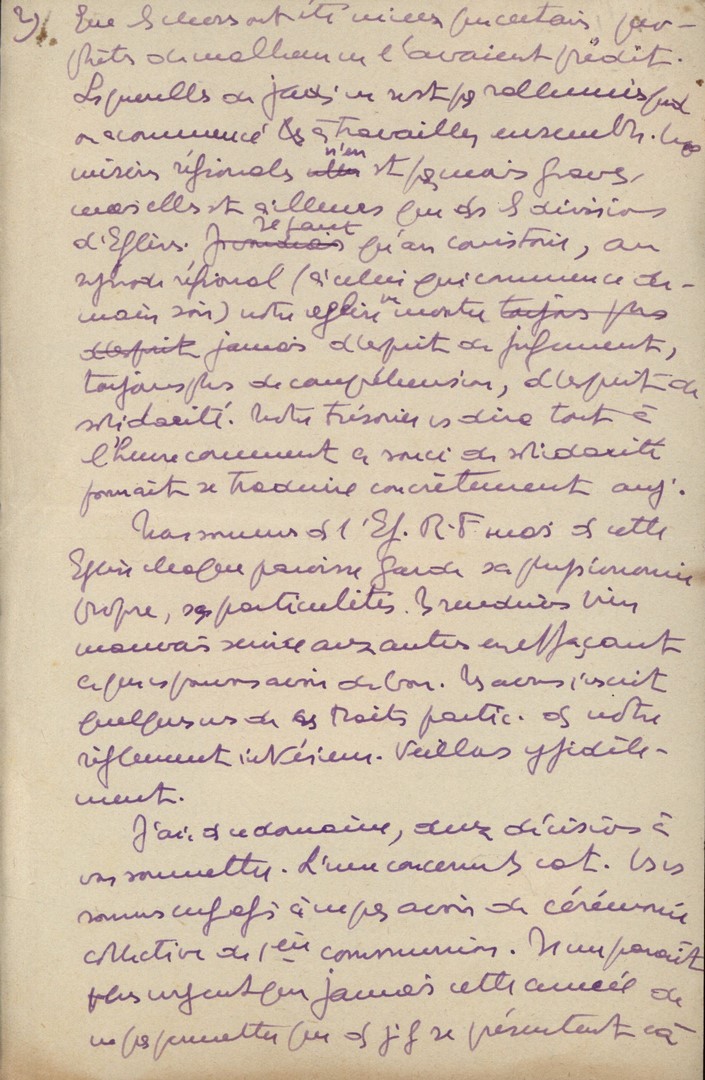 3) Que les choses ont été mieux que certains pro-
phètes de malheur ne l'avaient prédit.
Les querelles de jadis ne se st pas rallumées qud
on a commencé à travailler ensemble. Les
misères régionales n'en st pas moins graves,
mais elles st ailleurs que ds les divisions
d'Eglises. Il faut qu'au consistoire, au
synode régional (à celui qui commence de-
main soir) notre église ne montre toujours plus
d'esprit jamais d'esprit de jugement,
toujours plus de compréhension, d'esprit de
solidarité. Notre trésorier vs dira tout à
l'heure comment ce souci de solidarité
pourrait se traduire concrètement auj.
Nous sommes ds l'Eg. R. F mais ds cette
Eglise chaque paroisse garde sa physionomie
propre, ses particularités. Ns rendrions bien
mauvais service aux autres en effaçant
ce que ns pouvons avoir de bon. Ns avons inscrit
quelques uns de ces traits partic. ds notre
règlement intérieur. Veillons y fidèle-
ment.
J'ai, ds ce domaine, deux décisions à
vous soumettre. L'une concerne les cat. Ns ns
sommes engagés à ne pas avoir de cérémonie
collective de 1ère communion. Il me paraît
plus urgent que jamais cette année de
ne pas permettre que ds j. g. se présentent à